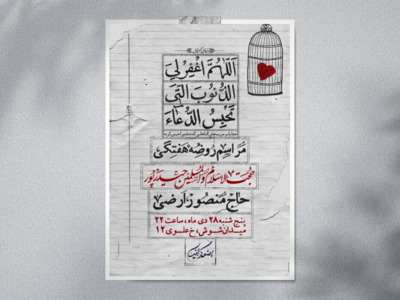 اَللّهُمَّ اغْفِرْ لِيَ
الذُّنُوبَ الَّتي
تَحْبِسُ الدُّعاءَ
مراسم روضه هفتگی
حجت الاسلام والمسلمین حیدرپور
حاج منصور ارضی
پنج شنبه ۲۸ دی ماه، ساعت ۲۲
میدان شوش، خ علوی ۱۲